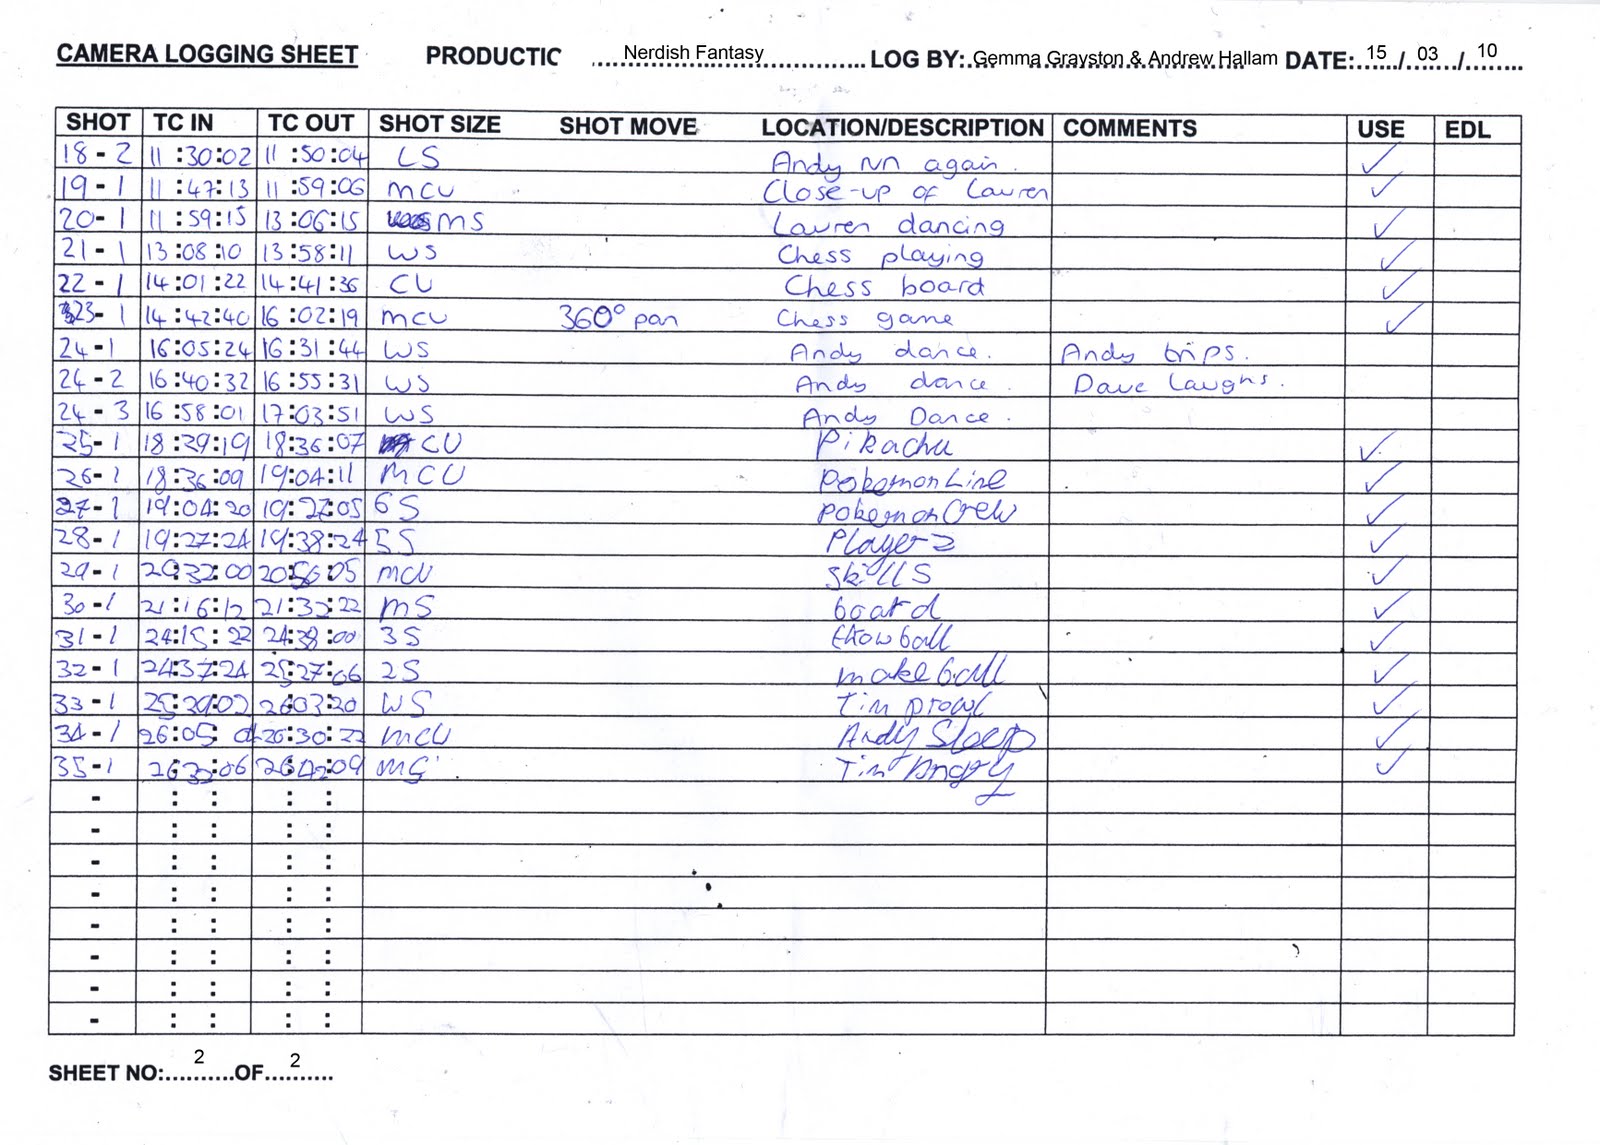 CAMERA LOGGING SHEET PRODUCTIC Nerdish Fantasy LOG BY: Gemma Grayston & Andrew Hallam DATE: 15 / 03 / 10
SHOT TC IN TC OUT SHOT SIZE SHOT MOVE LOCATION/DESCRIPTION COMMENTS USE EDL
18 - 2 11 :30:02 11 :50:04 LS Andy run again. ✓
19 - 1 11 :47:13 11 :59:06 MCU Close-up of Lauren ✓
20 - 1 11 :59:15 13:06:15 MS Lauren dancing ✓
21 - 1 13:08:10 13:58:11 WS Chess playing ✓
22 - 1 14:01:22 14:41:36 CU Chess board ✓
23 - 1 14:42:40 16:02:19 MCU 360° pan Chess game ✓
24 - 1 16:05:24 16:31:44 WS Andy dance. Andy trips.
24 - 2 16:40:32 16:55:31 WS Andy dance. Dave Laughs.
24 - 3 16:58:01 17:03:51 WS Andy Dance.
25 - 1 18:29:19 18:36:07 CU Pikachu ✓
26 - 1 18:36:09 19:04:11 MCU Pokemon Line ✓
27 - 1 19:04:20 19:27:05 6S Pokemon Crew ✓
28 - 1 19:27:24 19:38:24 5S Players ✓
29 - 1 20:32:00 20:56:05 MCU Skills ✓
30 - 1 21:16:12 21:32:22 MS board ✓
31 - 1 24:15:22 24:38:00 3S throw ball ✓
32 - 1 24:37:24 25:27:06 2S make ball ✓
33 - 1 25:29:02 26:03:20 WS Tim prowl ✓
34 - 1 26:05: 26:30:22 MCU Andy Sleep ✓
35 - 1 26:32:06 26:42:09 MS Tim Angry ✓
- : : : :
- : : : :
- : : : :
- : : : :
- : : : :
- : : : :
- : : : :
- : : : :
SHEET NO: 2 OF 2